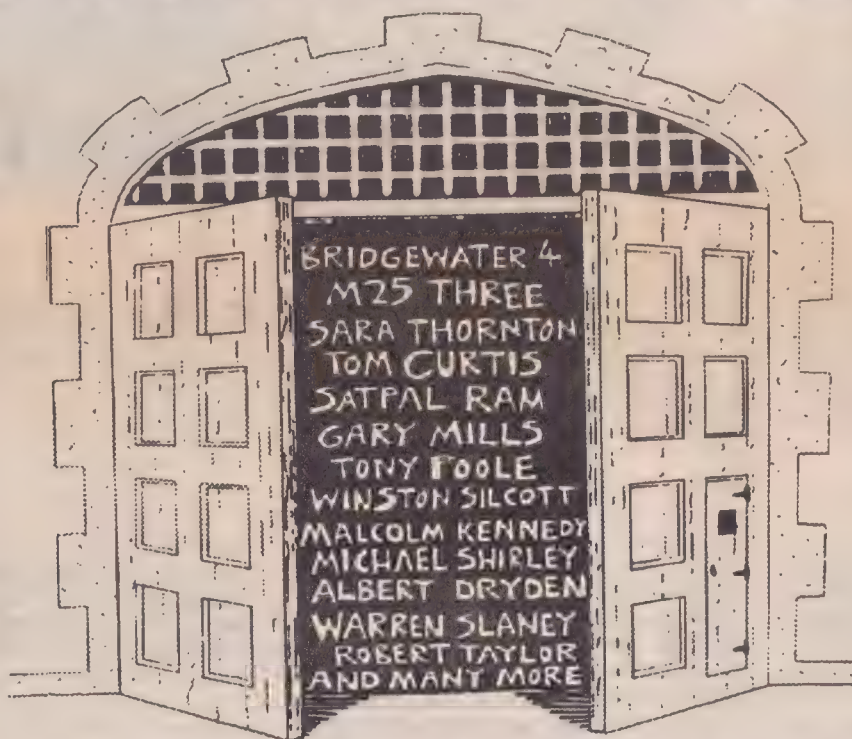 BRIDGEWATER 4
M25 THREE
SARA THORNTON
TOM CURTIS
SATPAL RAM
GARY MILLS
TONY POOLE
WINSTON SILCOTT
MALCOLM KENNEDY
MICHAEL SHIRLEY
ALBERT DRYDEN
WARREN SLANEY
ROBERT TAYLOR
AND MANY MORE